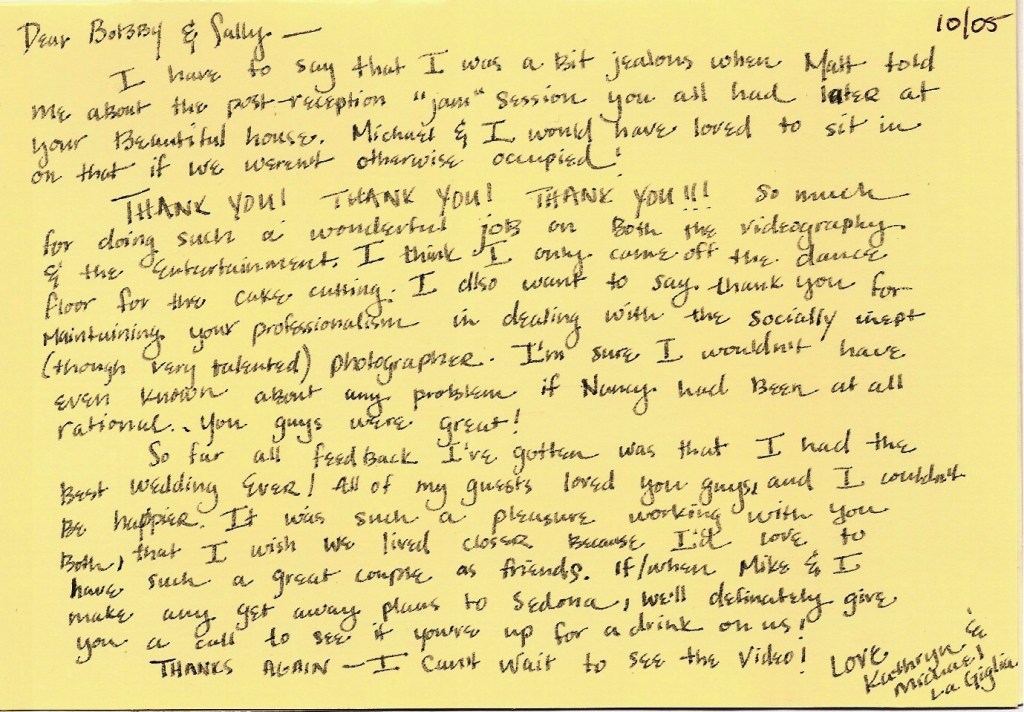 10/05
Dear Bobby & Sally —
I have to say that I was a bit jealous when Matt told
me about the post-reception "jam" session you all had later at
your beautiful house. Michael & I would have loved to sit in
on that if we weren't otherwise occupied!
THANK YOU! THANK YOU! THANK YOU!!! So much
for doing such a wonderful job on both the videography
& the entertainment. I think I only came off the dance
floor for the cake cutting. I also want to say thank you for
maintaining your professionalism in dealing with the socially inept
(though very talented) photographer. I'm sure I wouldn't have
even known about any problem if Nancy had been at all
rational.. You guys were great!
So far all feedback I've gotten was that I had the
best wedding ever! All of my guests loved you guys, and I couldn't
be happier. It was such a pleasure working with you
both, that I wish we lived closer because I'd love to
have such a great couple as friends. If/when Mike & I
make any get away plans to Sedona, we'll definately give
you a call to see if you're up for a drink on us!
THANKS AGAIN — I can't wait to see the video!
LOVE
Kathryn &
Michael
La Giglia